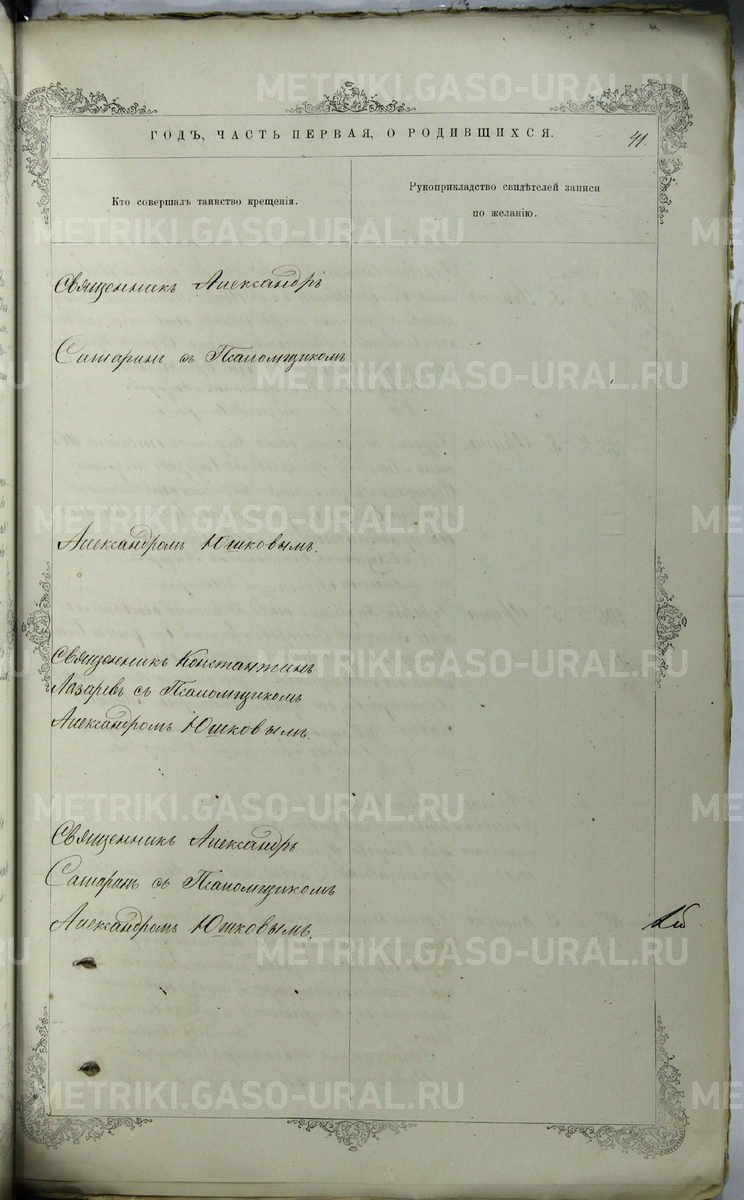 METRIKI.GASO-URAL.RU
ГОДЪ, ЧАСТЬ ПЕРВАЯ, О РОДИВШИХСЯ.
41.
Кто совершалъ таинство крещенія.
Рукоприкладство свидѣтелей записи
по желанію.
Священникъ Александръ
Сатаринъ съ Псаломщикомъ
Александромъ Юшковымъ.
Священникъ Константинъ
Лазаревъ съ Псаломщикомъ
Александромъ Юшковымъ.
Священникъ Александръ
Сатаринъ съ Псаломщикомъ
Александромъ Юшковымъ.